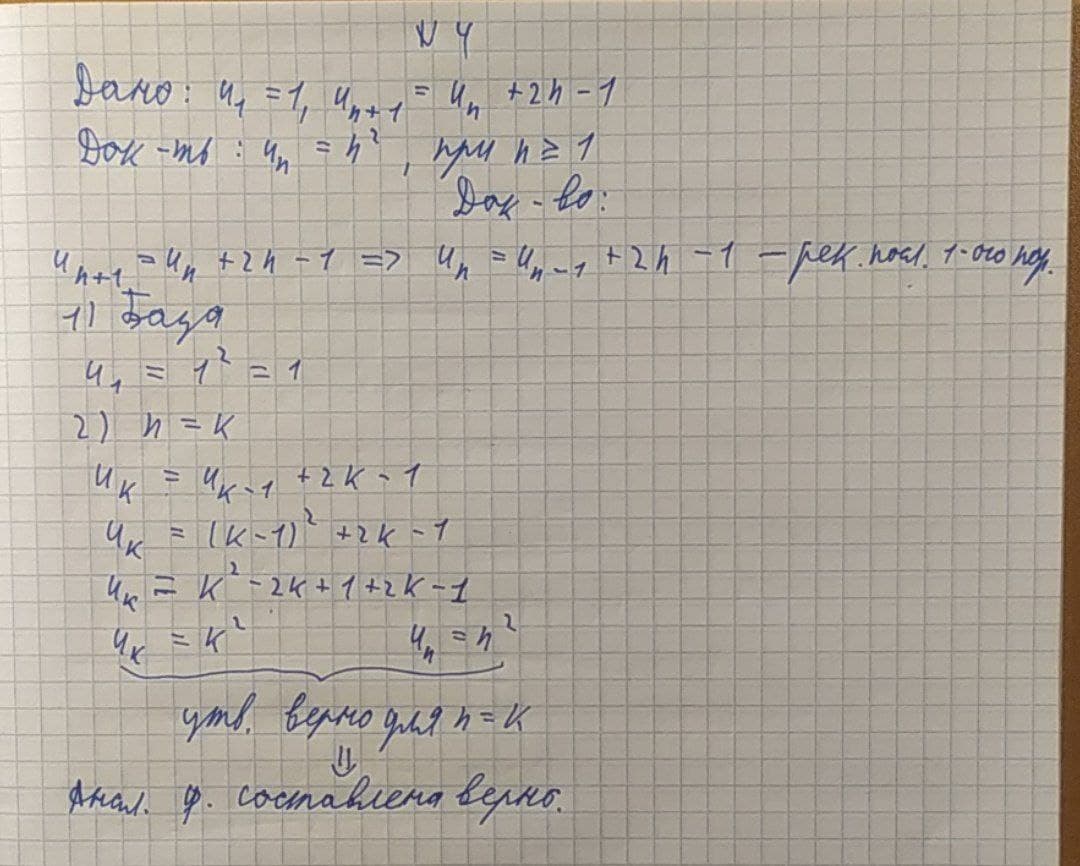 N 4
Дано: u₁ = 1, uₙ₊₁ = uₙ + 2n - 1
Док-ть: uₙ = n², при n ≥ 1
Док-во:
uₙ₊₁ = uₙ + 2n - 1 => uₙ = uₙ₋₁ + 2n - 1 — рек. посл. 1-ого пор.
1) База
u₁ = 1² = 1
2) n = k
uₖ = uₖ₋₁ + 2k - 1
uₖ = (k-1)² + 2k - 1
uₖ = k² - 2k + 1 + 2k - 1
uₖ = k² uₙ = n²
утв. верно для n = k
⇓
Анал. ф. составлена верно.